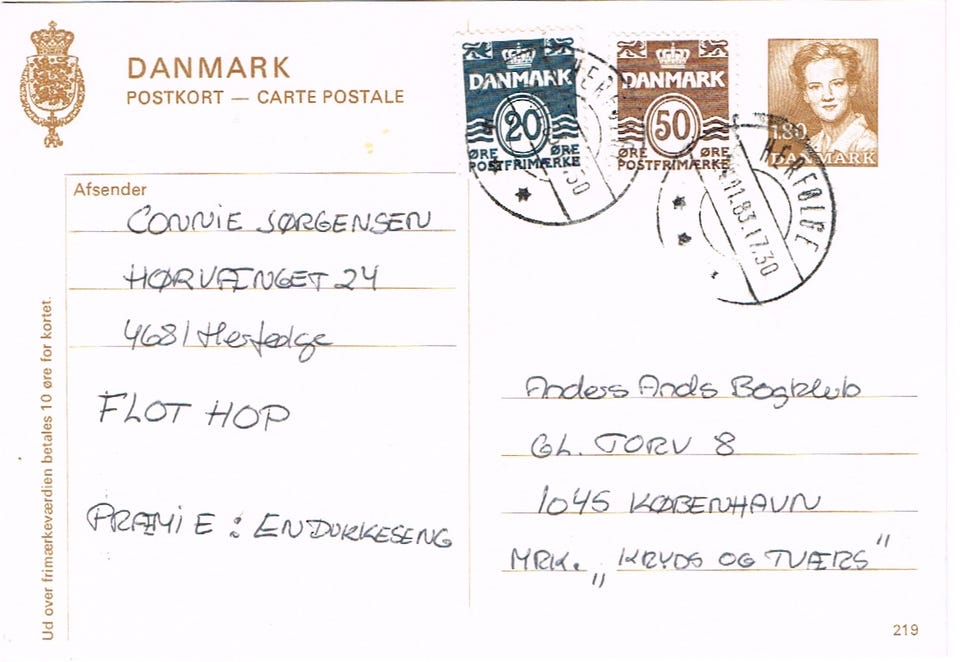 DANMARK
POSTKORT — CARTE POSTALE
DANMARK
20
ØRE ØRE
POSTFRIMÆRKE
DANMARK
50
ØRE ØRE
POSTFRIMÆRKE
1.80
DANMARK
HERFØLGE
.11.83.17.30
Afsender
CONNIE JØRGENSEN
HØRVÆNGET 24
4681 Herfølge
FLOT HOP
PRÆMIE: EN DUKKESENG
Anders Ands Bogklub
GL. TORV 8
1045 KØBENHAVN
MRK. „KRYDS OG TVÆRS"
Ud over frimærkeværdien betales 10 øre for kortet.
219